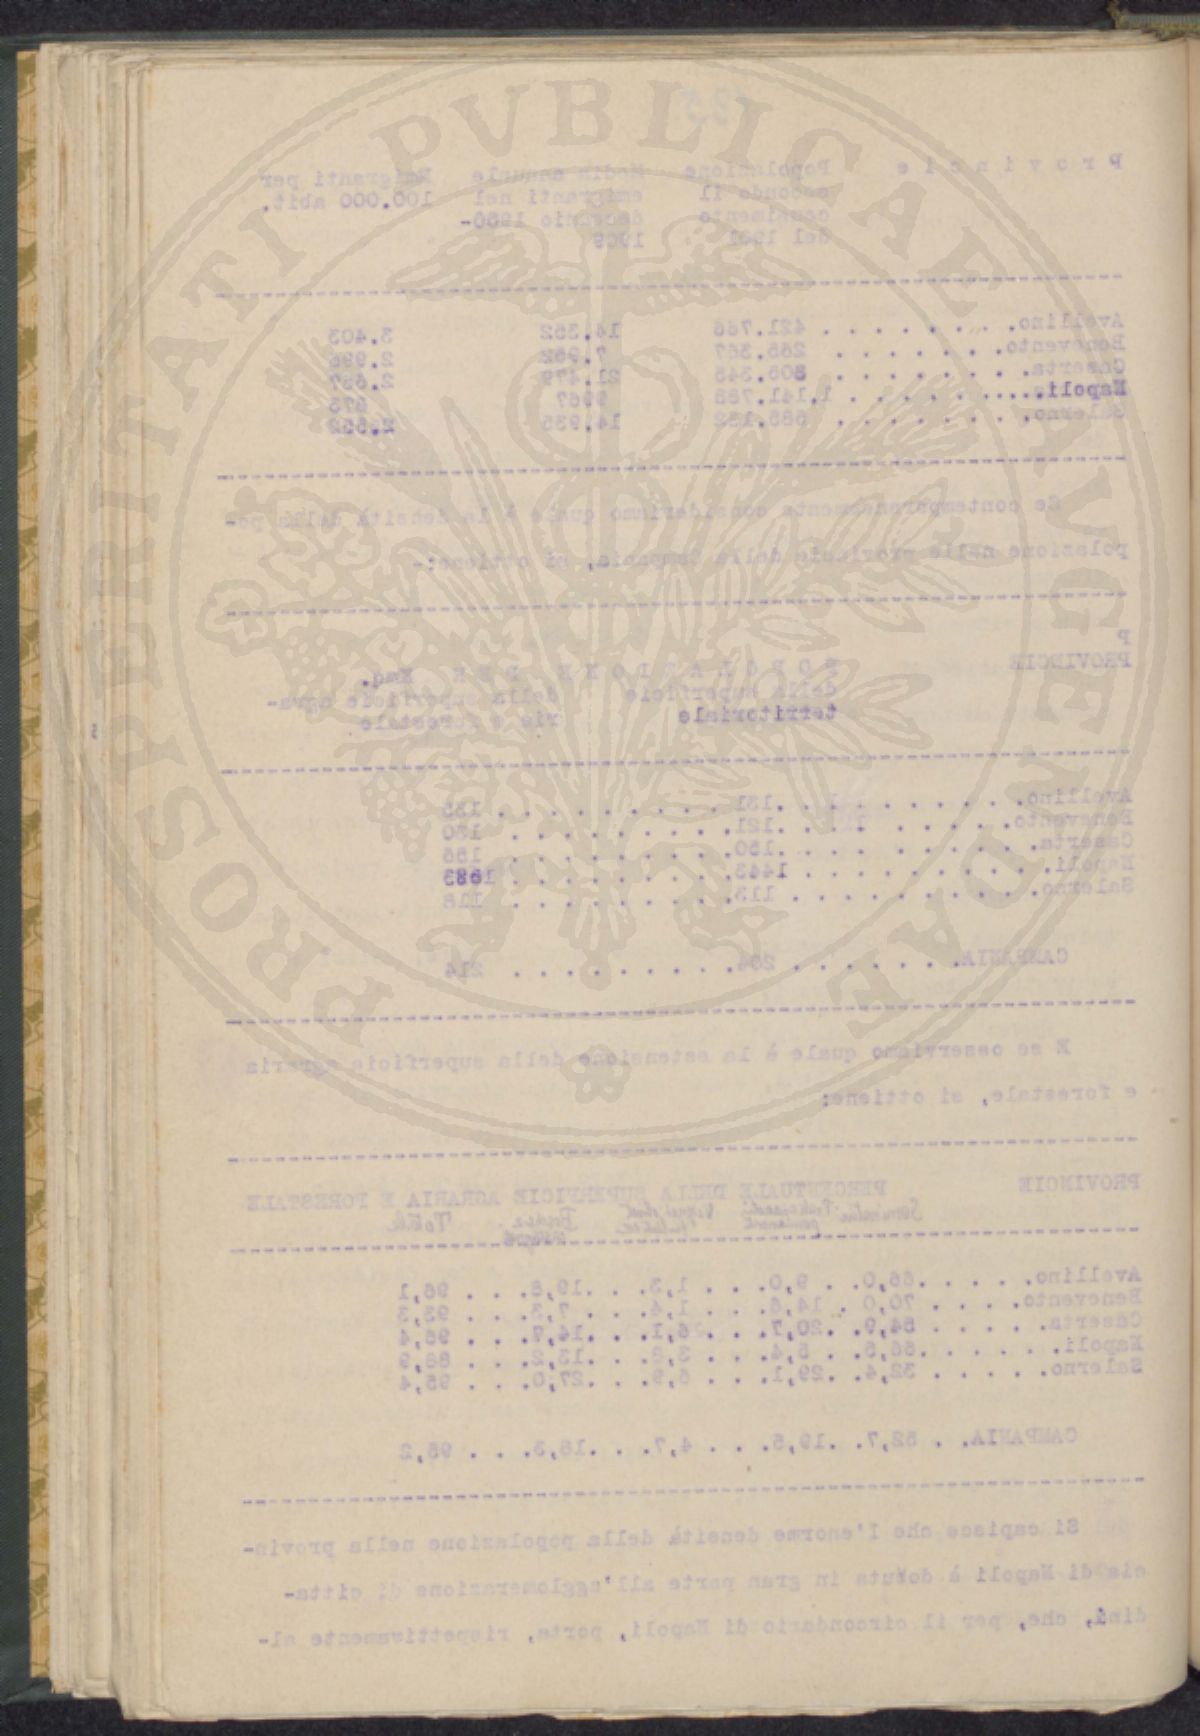 PROSPERITATI PVBLICAE AVGENDAE
135
Provincie Popolazione Media annuale Emigranti per
secondo il emigranti nel 100.000 abit.
censimento decennio 1900-
del 1901 1909
Avellino. . . . . . . . 421.766 14.352 3.403
Benevento. . . . . . . 265.367 7.952 2.996
Caserta. . . . . . . . 805.345 21.479 2.667
Napoli. . . . . . . . 1.141.788 9967 873
Salerno. . . . . . . . 585.132 14.935 2.552
Se contemporaneamente consideriamo quale è la densità della po-
polazione nelle provincie della Campania, si ottiene:-
P
PROVINCIE POPOLAZIONE PER Kmq.
della superficie della superficie agra-
territoriale ria e forestale
Avellino. . . . . . . . 131 . . . . . . . . . 135
Benevento. . . . . . . 121. . . . . . . . . 130
Caserta. . . . . . . . 150. . . . . . . . . 156
Napoli. . . . . . . . . 1443. . . . . . . . . 1683
Salerno. . . . . . . . . 113. . . . . . . . . 118
CAMPANIA. . . . . . . 204. . . . . . . . . 214
E se osserviamo quale è la estensione della superficie agraria
e forestale, si ottiene:
PROVINCIE PERCENTUALE DELLA SUPERFICIE AGRARIA E FORESTALE
Seminativi Boschi Totale
Avellino. . . . . .66,0. . 9,0. . . 1,3. . .19,8. . . 96,1
Benevento. . . . . 70,0 . 14,6. . . 1,4. . . 7,3. . . 93,3
Caserta. . . . . . 54,9. .20,7. . . 6,1. . .14,7. . . 96,4
Napoli. . . . . . .66,5. . 5,4. . . 3,8. . .13,2. . . 88,9
Salerno. . . . . . 32,4. .29,1. . . 6,9. . .27,0. . . 95,4
CAMPANIA. . 52,7. .19,5. . . 4,7. . .18,3. . . 95,2
Si capisce che l'enorme densità della popolazione nella provin-
cia di Napoli è dovuta in gran parte all'agglomerazione di citta-
dini, che, per il circondario di Napoli, porta, rispettivamente al-